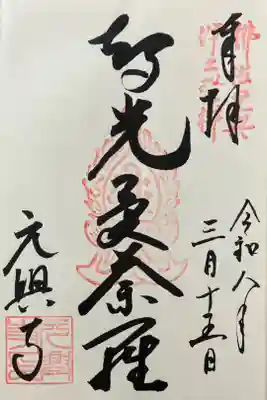 奉拝
令和八年
三月十五日
智光曼荼羅
元興寺